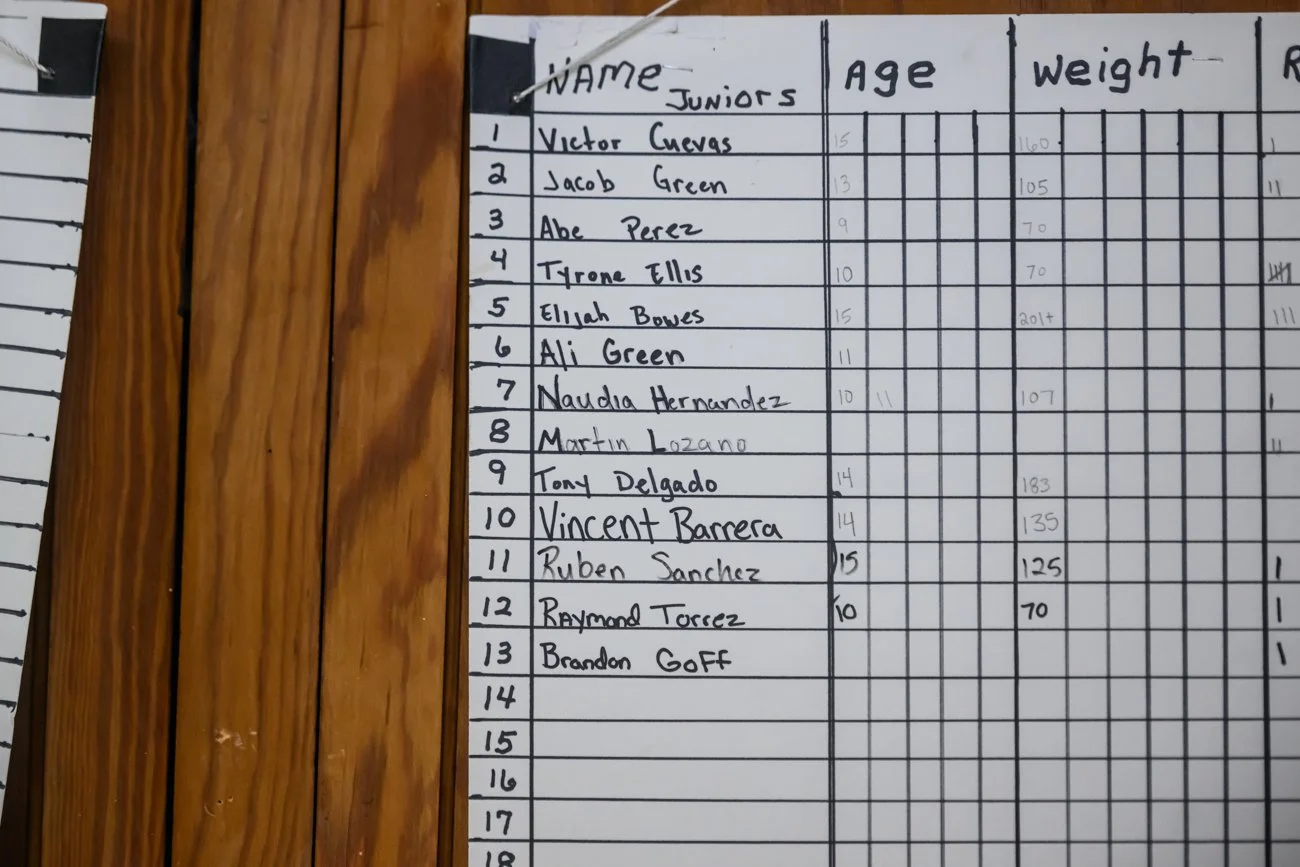 NAME Juniors Age Weight R
1 Victor Cuevas 15 160 |
2 Jacob Green 13 105 ||
3 Abe Perez 9 70
4 Tyrone Ellis 10 70
5 Elijah Bowes 15 201+ |||
6 Ali Green 11
7 Naudia Hernandez 10 11 107 |
8 Martin Lozano ||
9 Tony Delgado 14 183
10 Vincent Barrera 14 135
11 Ruben Sanchez 15 125 |
12 Raymond Torrez 10 70 |
13 Brandon Goff |
14
15
16
17
18